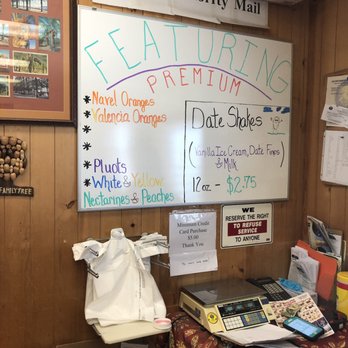 ority Mail
FEATURING
PREMIUM
* Navel Oranges
* Valencia Oranges
*
*
*
* Pluots
* White & Yellow
Nectarines & Peaches
Date Shakes
(Vanilla Ice Cream, Date
& Milk)
12oz - $2.75
FAMILY TREE
Minimum Credit
Card Purchase
$5.00
Thank You
WE
RESERVE THE RIGHT
TO REFUSE
SERVICE
TO ANYONE